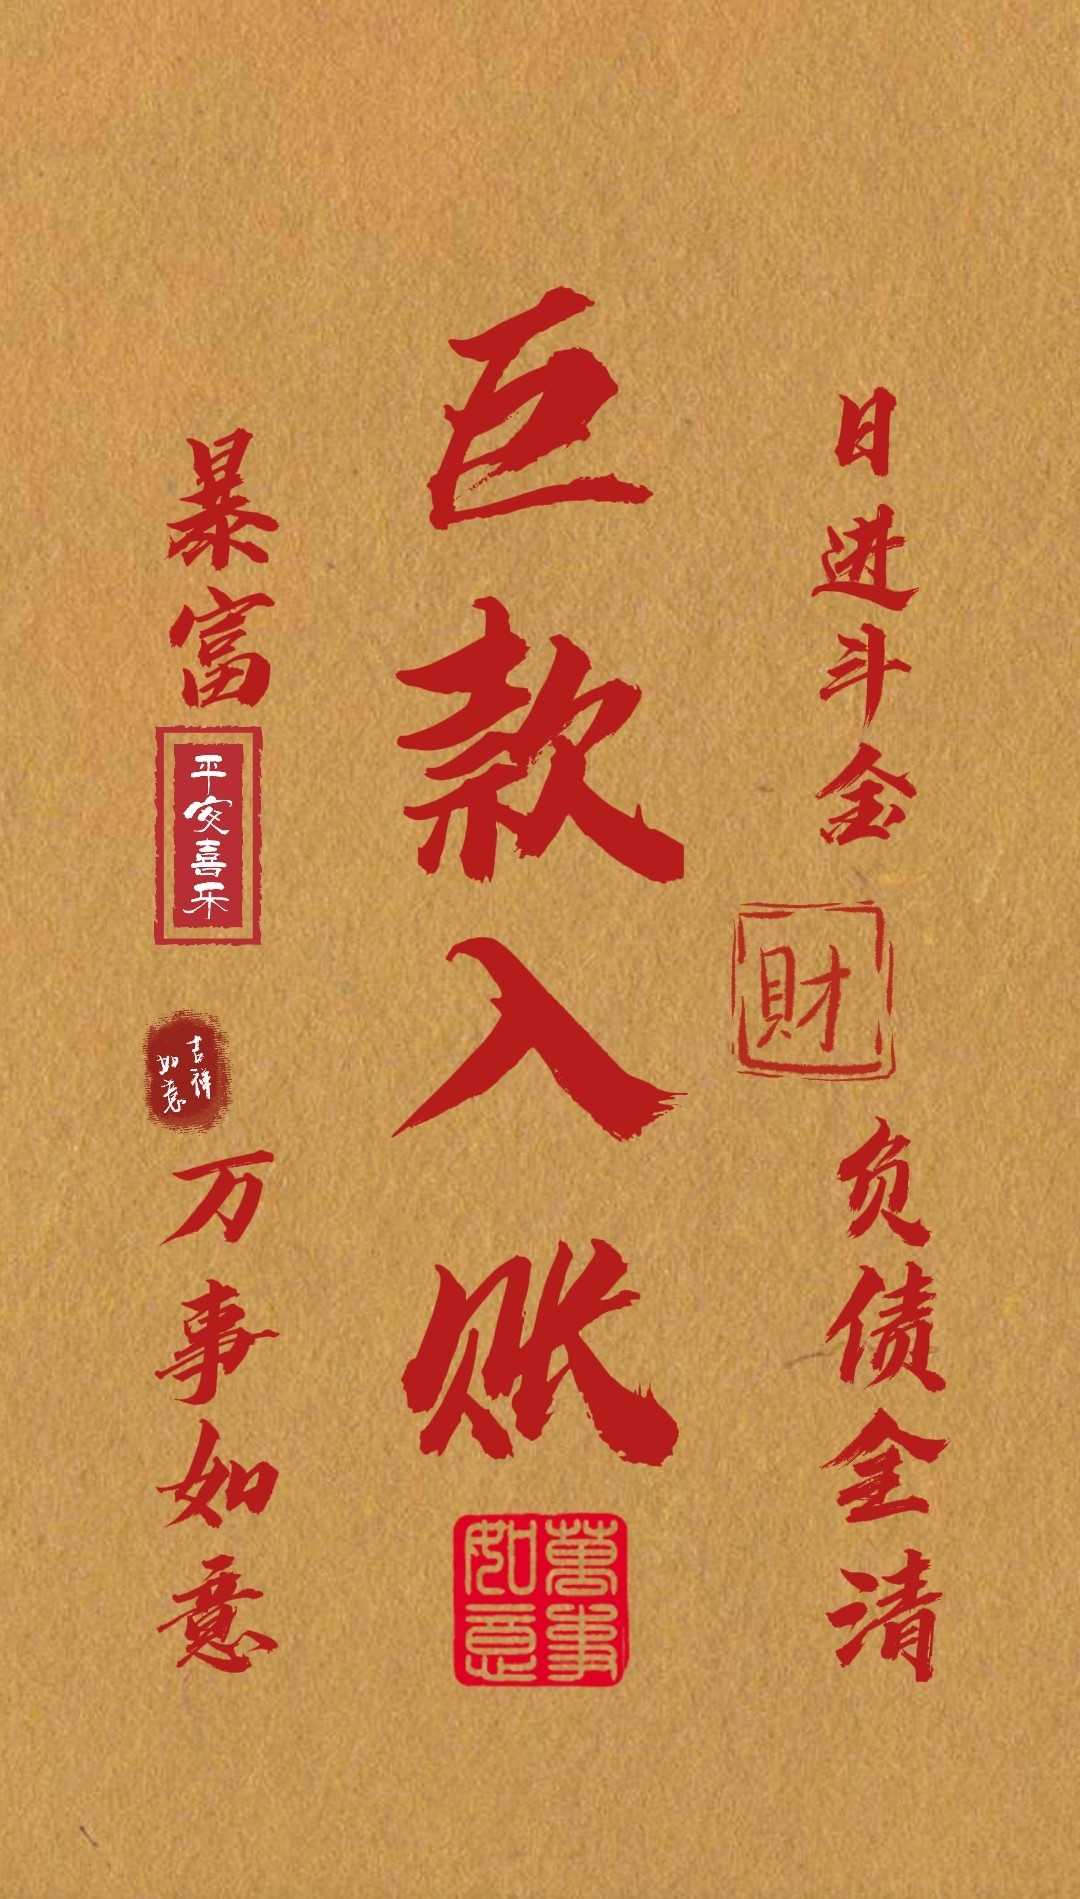 日进斗金
財
负债全清
巨款入账
萬事如意
暴富
平安喜乐
吉祥如意
万事如意